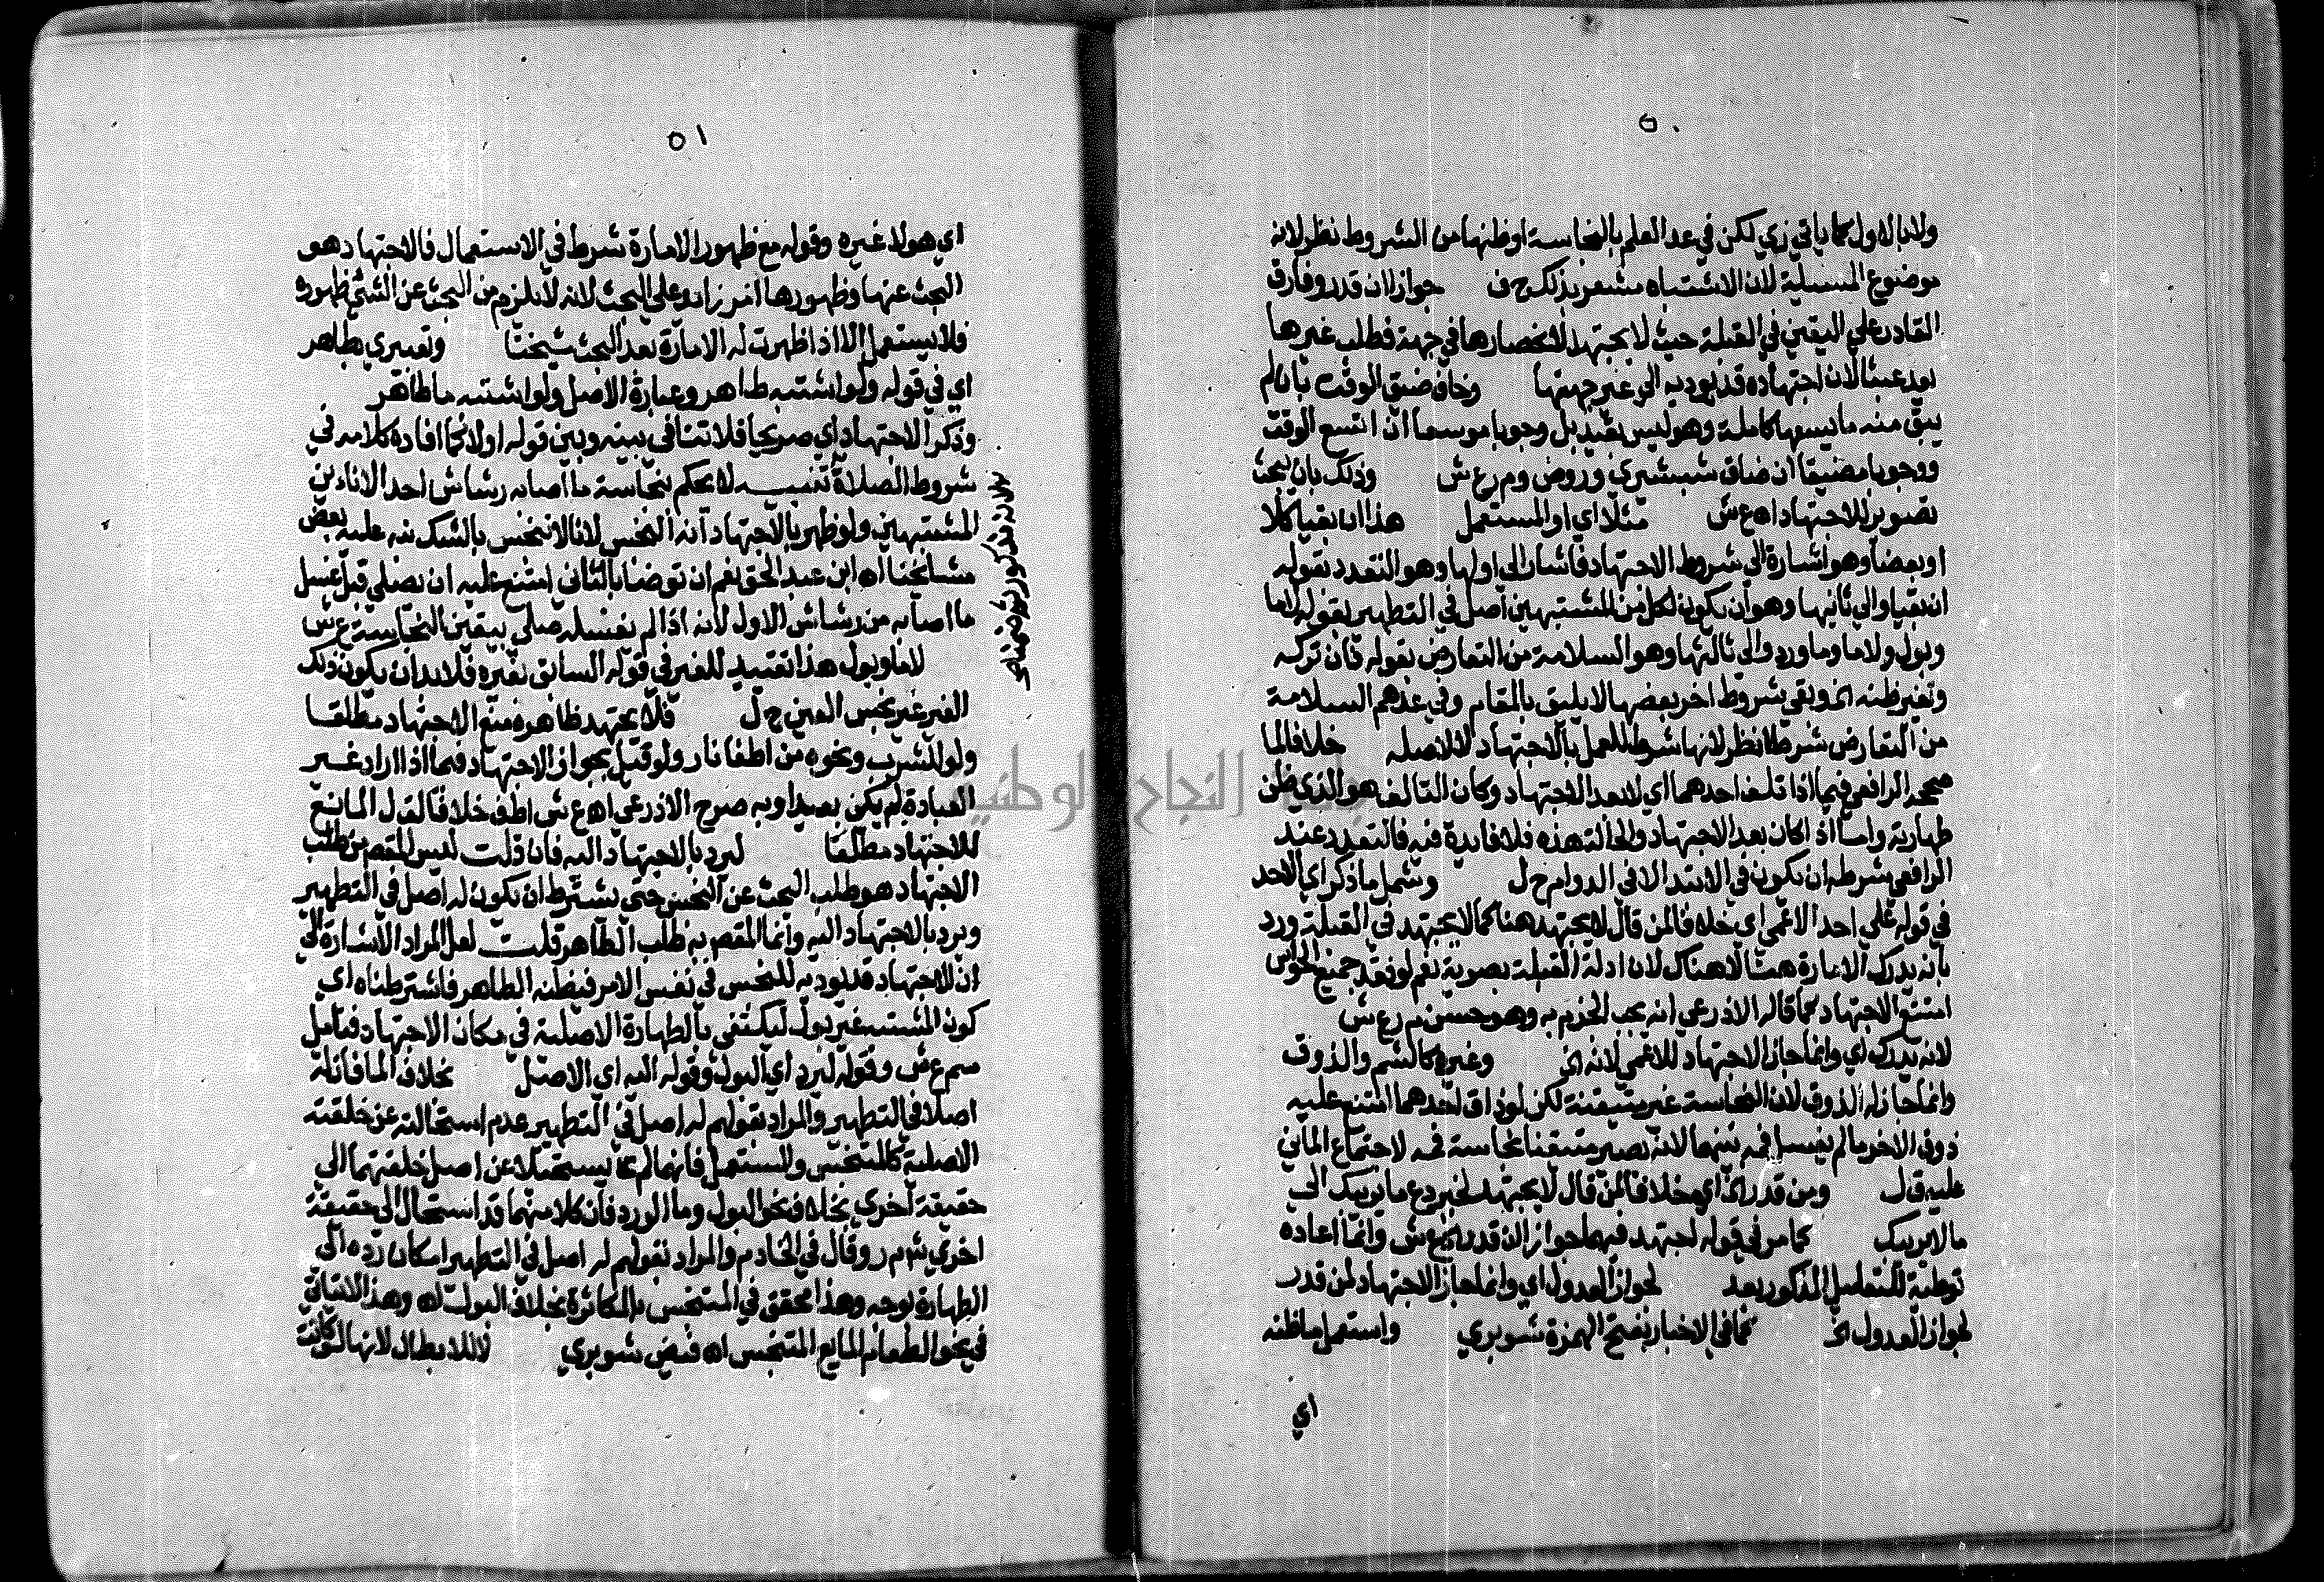 ٥٠
ولا بالاول كما ياتي زي لكن في عد العلم بالنجاسة او ظنها من الشروط نظر لانه
موضوع المسئلة لان الاشتباه مشعر بذلك ح ف جواز ان قدر وفارق
القادر علي اليقين في القبلة حيث لا يجتهد لانحصارها في جهة فطلب غيرها
يعد عبثا لان اجتهاده قد يوديه الي غير جهتها وخاف ضيق الوقت بان لم
يبق منه ما يسعها كاملة وهو ليس بقيد بل وجوبا موسعا ان اتسع الوقت
ووجوبا مضيقا ان ضاق شبشيري وروض وم ر ع ش وذلك بان يبحث
تصوير للاجتهاد اه ع ش مثلا اي او المستعمل هذا ان بقيا كلا
او بعضا وهو اشارة الي شروط الاجتهاد فاشار الي اولها وهو التعدد بقوله
ان بقيا والي ثانيها وهو ان يكون لكل من المشتبهين اصل في التطهير بقوله لاما
وبول ولا ما وما ورد والي ثالثها وهو السلامة من التعارض بقوله فان تركه
وتغير ظنه الخ وبقي شروط اخر بعضها لا يليق بالمقام وفي عدهم السلامة
من التعارض شرطا نظر لانها شرط للعمل بالاجتهاد لا لاصله خلافا لما
صححه الرافعي فيما اذا تلف احدهما اي لا بعد الاجتهاد وكان التالف هو الذي ظن
طهارته واما اذا كان بعد الاجتهاد والحالة هذه فلا فايدة فيه فالتعدد عند
الرافعي شرطه ان يكون في الابتدا لا في الدوام ح ل وشمل ما ذكر اي الاحد
في قوله علي احد الاعمي اي خلافا لمن قال لا يجتهد هنا كما لا يجتهد في القبلة ورد
بانه يدرك الامارة هنا لا هناك لان ادلة القبلة بصرية نعم لو فقد جميع الحواس
امتنع الاجتهاد كما قاله الاذرعي انه يجب الجزم به وهو حسن م ر ع ش
لانه يدرك اي وانما جاز الاجتهاد للاعمي لانه الخ وغيره كالشم والذوق
وانما جاز له الذوق لان النجاسة غير متيقنة لكن لو ذاق احدهما امتنع عليه
ذوق الاخر ما لم يغسل فمه بينهما لانه يصير متيقنا نجاسة فمه لاجتماع الماين
عليه ق ل ومن قدر الخ اي خلافا لمن قال لا يجتهد لخبر دع ما يريبك الي
ما لا يريبك كما مر في قوله اجتهد فيهما جوازا ان قدر الخ ع ش وانما اعاده
توطئة للتعليل المذكور بعد لجواز العدول اي وانما جاز الاجتهاد لمن قدر
لجواز العدول الخ كما في الاخبار بفتح الهمزة شوبري واستعمل ما ظنه
اي
٥١
اي هو لا غيره وقوله مع ظهور الامارة شرط في الاستعمال فالاجتهاد هو
البحث عنها وظهورها امر زايد علي البحث لانه لا يلزم من البحث عن الشئ ظهوره
فلا يستعمل الا اذا ظهرت له الامارة بعد البحث شيخنا وتعبيري بطاهر
اي في قوله ولو اشتبه طاهر وعبارة الاصل ولو اشتبه ما طاهر
وذكر الاجتهاد اي صريحا فلا تنافي بينه وبين قوله اولا كما افاده كلامه في
شروط الصلاة تنبيه لا يحكم بنجاسة ما اصابه رشاش احد الاناءين
المشتبهين ولو ظهر بالاجتهاد انه النجس لانا لا ننجس بالشك نبه عليه بعض
مشايخنا اه ابن عبد الحق نعم ان توضا بالثاني امتنع عليه ان يصلي قبل غسل
ما اصابه من رشاش الاول لانه اذا لم يغسله صلي بيقين النجاسة ع ش
لاما وبول هذا تقييد للغير في قوله السابق بغيره فلابد ان يكون ذلك
الغير غير نجس العين ح ل فلا يجتهد ظاهره منع الاجتهاد مطلقا
ولو للشرب ونحوه من اطفا نار ولو قيل بجواز الاجتهاد فيما اذا اراد غير
العبادة لم يكن بعيدا وبه صرح الاذرعي اه ع ش اطف خلافا لقول المانع
للاجتهاد مطلقا ليرد بالاجتهاد اليه فان قلت ليس المقص من طلب
الاجتهاد هو طلب البحث عن النجس حتي يشترط ان يكون له اصل في التطهير
ويرد بالاجتهاد اليه وانما المقص به طلب الطاهر قلت لعل المراد الاشارة الي
ان الاجتهاد قد يوديه للنجس في نفس الامر فيظنه الطاهر فاشترطناه اي
كون المشتبه غير بول ليكتفي بالطهارة الاصلية في مكان الاجتهاد فتامل
سم ع ش وقوله ليرد اي البول وقوله اليه اي الاصل بخلاف الما فان له
اصلا في التطهير والمراد بقولهم له اصل في التطهير عدم استحالته عن خلقته
الاصلية كالمتنجس والمستعمل فانهما لم يستحيلا عن اصل خلقتهما الي
حقيقة اخري بخلاف نحو البول وما الورد فان كلا منهما قد استحال الي حقيقة
اخري ش م ر وقال في الخادم والمراد بقولهم له اصل في التطهير امكان رده الي
الطهارة بوجه وهذا محقق في المتنجس بالمكاثرة بخلاف البول اه وهذا لا ياتي
في نحو الطعام المايع المتنجس اه فيض شوبري لا للابطال لانها لو كانت
لانه مذكور ضمنا